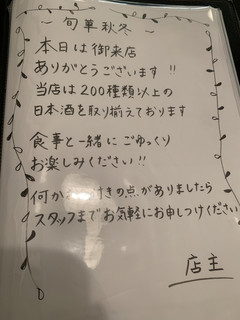 ~ 旬菓秋冬 ~
本日は御来店
ありがとうございます!!
当店は200種類以上の
日本酒を取り揃えております
食事と一緒にごゆっくり
お楽しみください!!
何か きの点がありましたら
スタッフまでお気軽にお申しつけください
店主